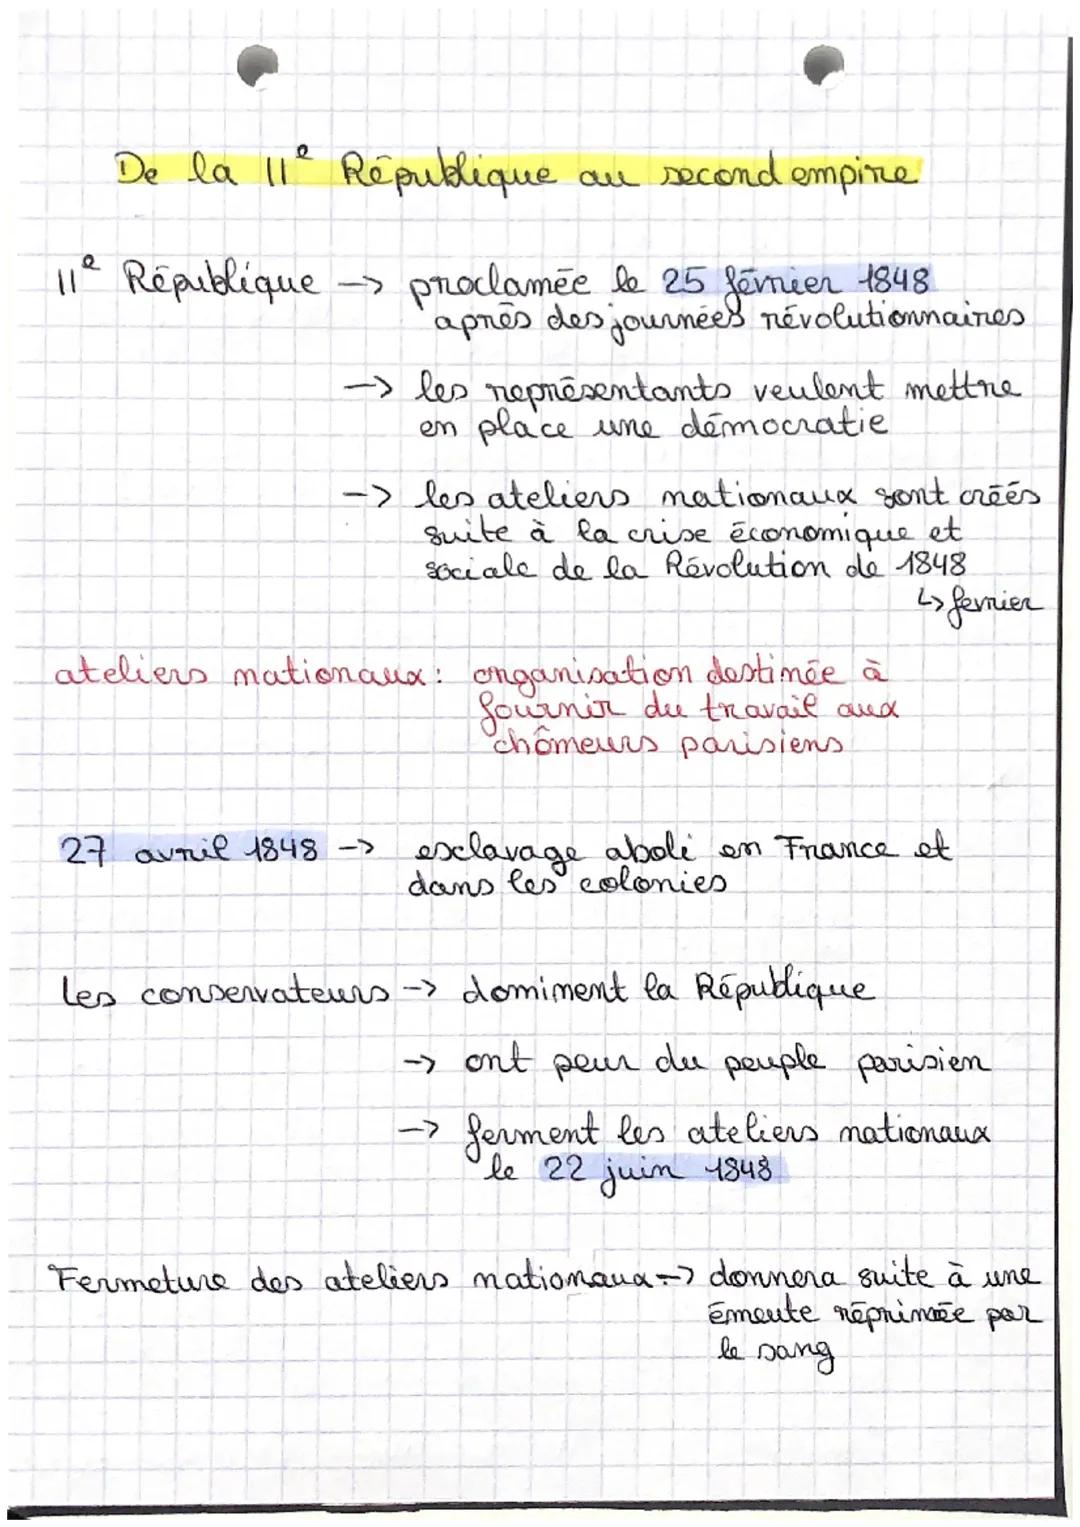 De la IIe République au second empire
IIe République -> proclamée le 25 février 1848
après des journées révolutionnaires
-> les représentants veulent mettre
en place une démocratie
-> les ateliers nationaux sont créés
suite à la crise économique et
sociale de la Révolution de 1848
↳ fevrier
ateliers nationaux : organisation destinée à
fournir du travail aux
chômeurs parisiens
27 avril 1848 -> esclavage aboli en France et
dans les colonies
Les conservateurs -> dominent la République
-> ont peur du peuple parisien
-> ferment les ateliers nationaux
le 22 juin 1848
Fermeture des ateliers nationaux -> donnera suite à une
émeute réprimée par
le sang